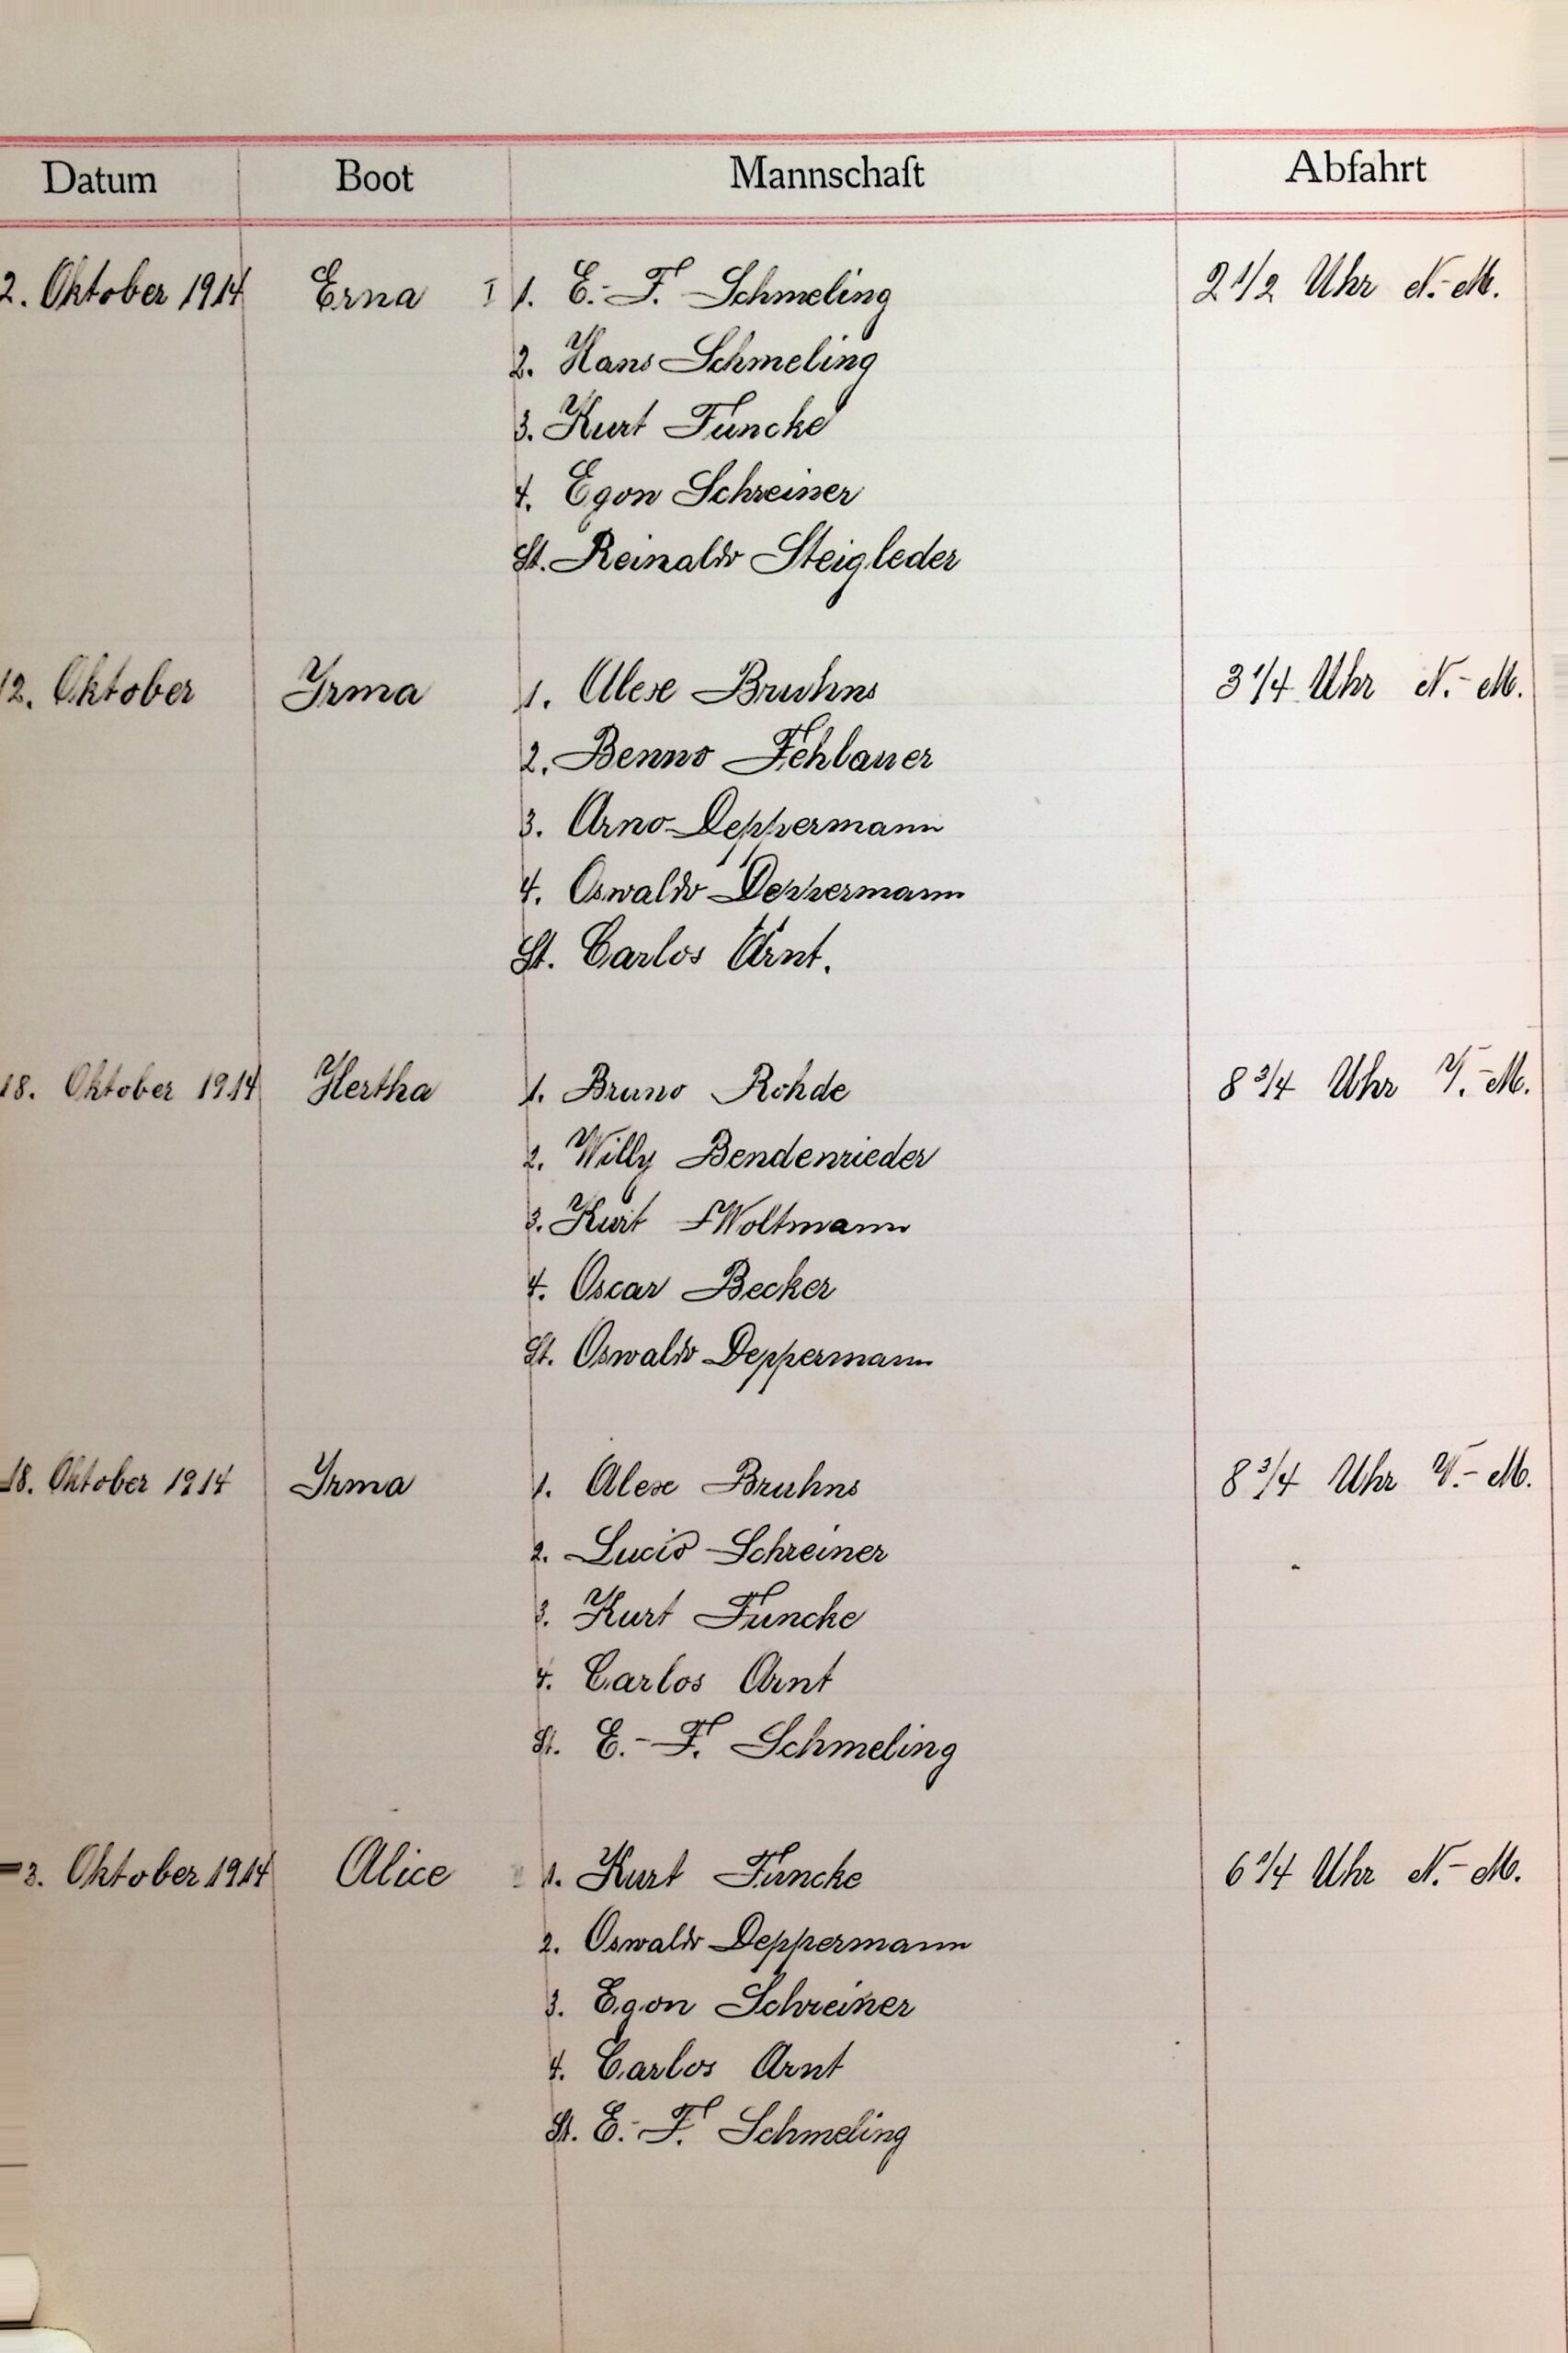 Datum Boot Mannschaft Abfahrt
2. Oktober 1914 Erna I 1. E.-F. Schmeling 2 1/2 Uhr N.-M.
2. Hans Schmeling
3. Kurt Funcke
4. Egon Schreiner
St. Reinaldo Steigleder
12. Oktober Yrma 1. Alex Bruhns 3 1/4 Uhr N.-M.
2. Benno Fehlauer
3. Arno Deppermann
4. Oswaldo Deppermann
St. Carlos Arnt.
18. Oktober 1914 Hertha 1. Bruno Rohde 8 3/4 Uhr V.-M.
2. Willy Bendenrieder
3. Kurt Woltmann
4. Oscar Becker
St. Oswaldo Deppermann
18. Oktober 1914 Yrma 1. Alex Bruhns 8 3/4 Uhr V.-M.
2. Lucio Schreiner
3. Kurt Funcke
4. Carlos Arnt
St. E.-F. Schmeling
3. Oktober 1914 Alice 1. Kurt Funcke 6 1/4 Uhr N.-M.
2. Oswaldo Deppermann
3. Egon Schreiner
4. Carlos Arnt
St. E.-F. Schmeling